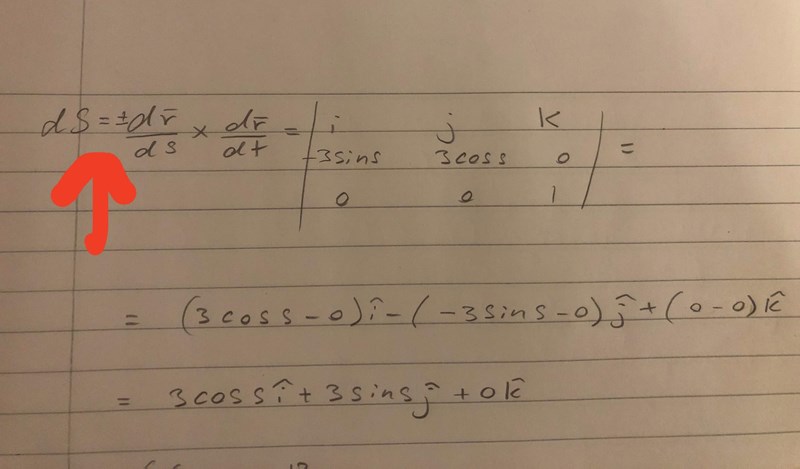 dS = ± dr̄/ds × dr̄/dt = | i j k |
| -3sins 3coss 0 | =
| 0 0 1 |
= (3coss - 0)î - (-3sins - 0)ĵ + (0 - 0)k̂
= 3cossî + 3sinsĵ + 0k̂